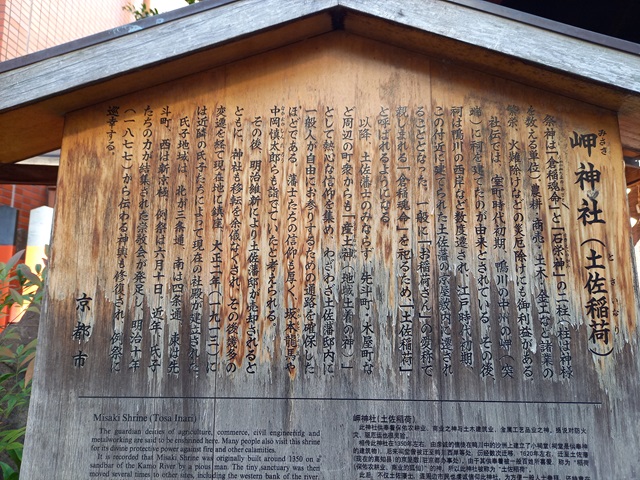 岬神社(土佐稲荷)
みさき
とさいなり
祭神は「倉稲魂命」と「石栄神」の二柱(柱は神様
を数える単位)。農耕・商売・土木・金工など諸業の
繁栄、火難除けなどの災厄除けにも御利益がある。
社伝では、室町時代初期、鴨川の中州の岬(突
端)に祠を建てたのが由来とされている。その後、
祠は鴨川の西岸など数度遷され、江戸時代初期、
この付近に建てられた土佐藩の京都藩邸内に遷され
ることとなった。一般に「お稲荷さん」の愛称で
親しまれる「倉稲魂命」を祀るため、「土佐稲荷」
と呼ばれるようになる。
以降、土佐藩士のみならず、先斗町・木屋町な
ど周辺の町衆からも「産土神(地域土着の神)」
として熱心な信仰を集め、わざわざ土佐藩邸内に
一般人が自由にお参りするための通路を確保した
ほどである。藩士たちの信仰も厚く、坂本龍馬や
中岡慎太郎らも詣でていたと考えられる。
その後、明治維新により土佐藩邸が売却されると
ともに、神社も移転を余儀なくされ、その後幾多の
変遷を経て現在地に鎮座。大正二年(一九一三)に
は近隣の氏子たちによって現在の社殿が建造された。
氏子地域は、北が三条通、南は四条通、東は先
斗町、西は新京極。例祭は六月十日。近年、氏子
たちの力が結集された崇敬会が発足し、明治十年
(一八七七)から伝わる神輿も修復され、例祭に
巡幸する。
京都市
Misaki Shrine (Tosa Inari)
The guardian deities of agriculture, commerce, civil engineering and
metalworking are said to be enshrined here. Many people also visit this shrine
for its divine protective power against fire and other calamities.
It is recorded that Misaki Shrine was originally built around 1350 on a
sandbar of the Kamo River by a pious man. The tiny sanctuary was then
moved several times to other sites, including the western bank of the river.
岬神社(土佐稲荷)